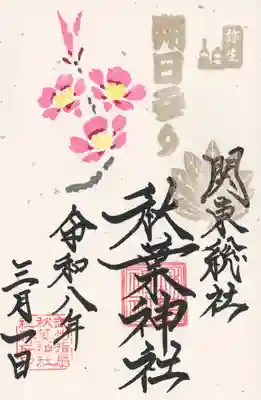 弥生
朔日参り
関東総社
秋葉神社
令和八年
三月一日